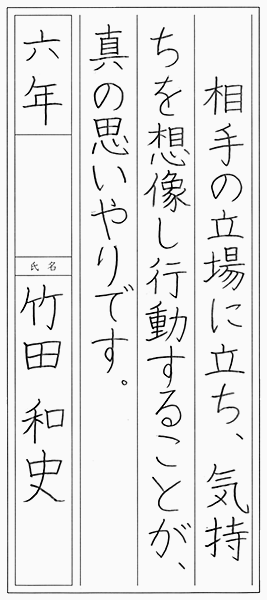 相手の立場に立ち、気持
ちを想像し行動することが、
真の思いやりです。
六年
氏名
竹田和史